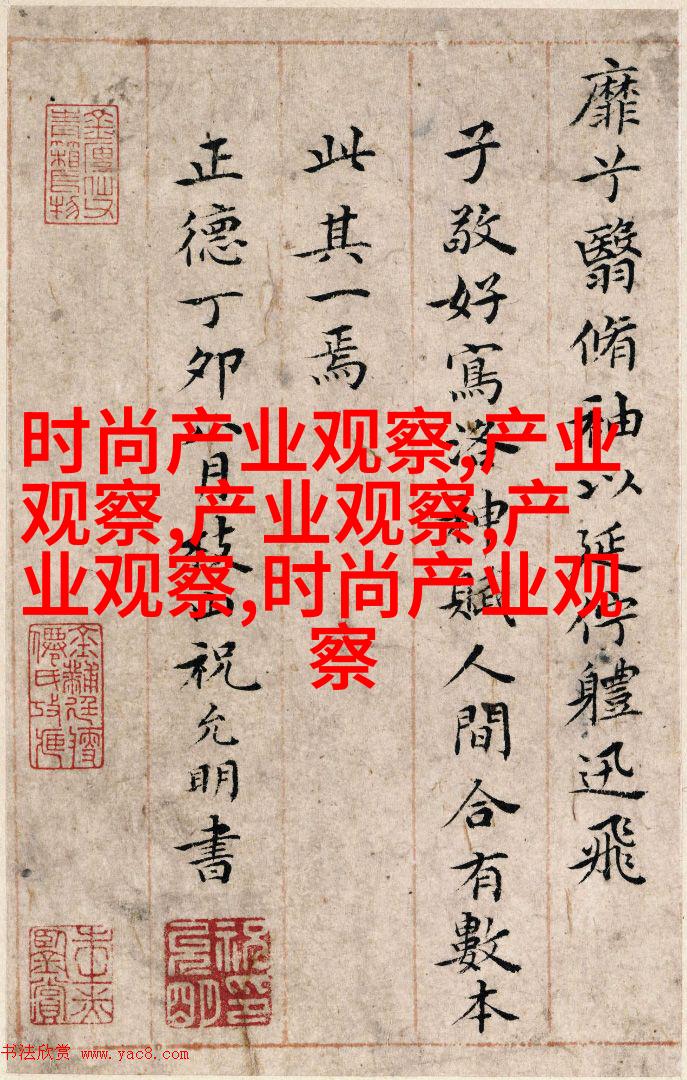 靡兮翳脩袖以延佇體迅飛
子敬好寫洛神賦人間合有數本
此其一焉
正德丁卯月枝山祝允明書
时尚产业观察,产业
观察,产业观察,产
业观察,时尚产业观
察
书法欣赏 www.yac8.com